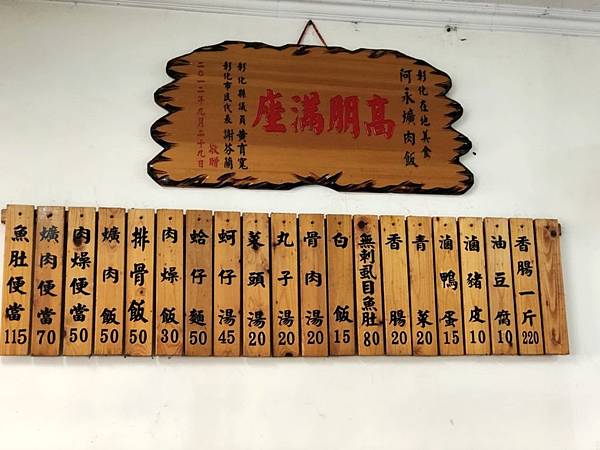 彰化在地美食
阿永爌肉飯
高朋滿座
彰化縣議員黃育寬
彰化市民代表謝芬蘭
敬贈
二〇一二年九月二十九日
魚肚便當115
爌肉便當70
肉燥便當50
爌肉飯50
排骨飯50
肉燥飯30
蛤仔麵50
蚵仔湯45
菜頭湯20
丸子湯20
骨肉湯20
白飯15
無刺虱目魚肚80
香腸20
青菜20
滷鴨蛋15
滷豬皮10
油豆腐10
香腸一斤220